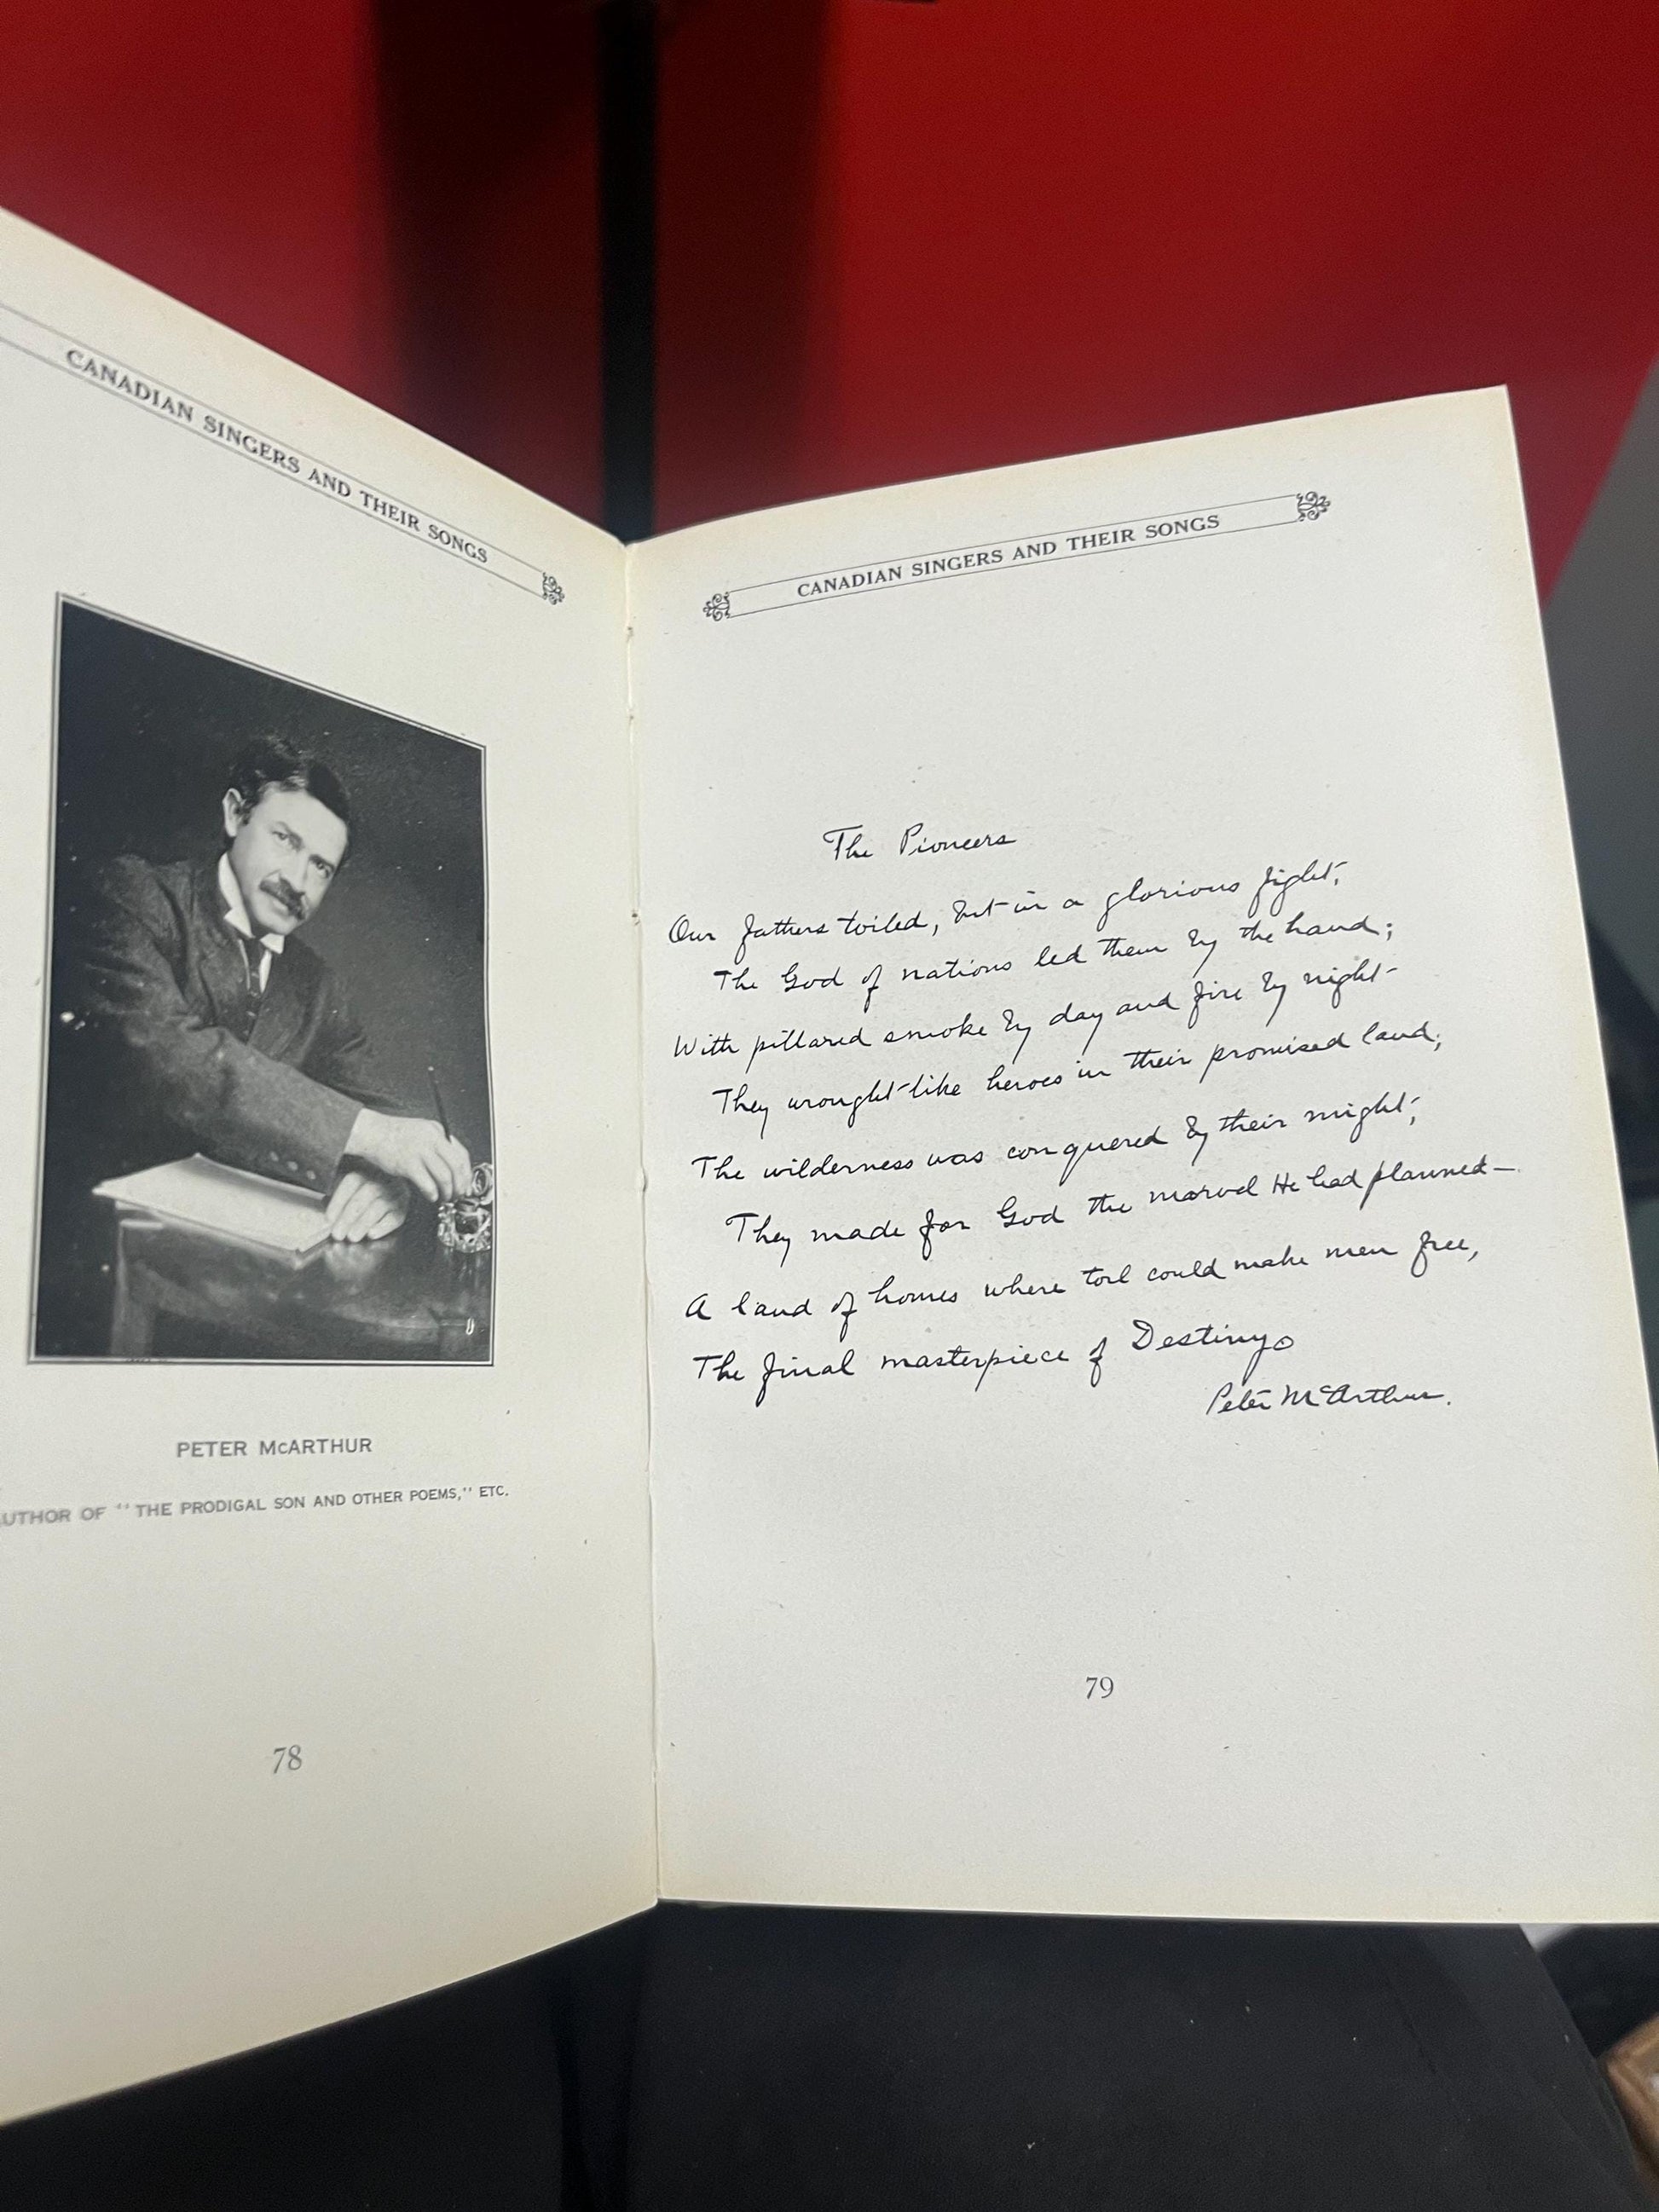 CANADIAN SINGERS AND THEIR SONGS
PETER McARTHUR
AUTHOR OF "THE PRODIGAL SON AND OTHER POEMS," ETC.
78
CANADIAN SINGERS AND THEIR SONGS
The Pioneers
Our fathers toiled, but in a glorious fight;
The God of nations led them by the hand;
With pillared smoke by day and fire by night
They wrought like heroes in their promised land;
The wilderness was conquered by their might;
They made for God the marvel He had planned—
A land of homes where toil could make men free,
The final masterpiece of Destiny.
Peter McArthur.
79